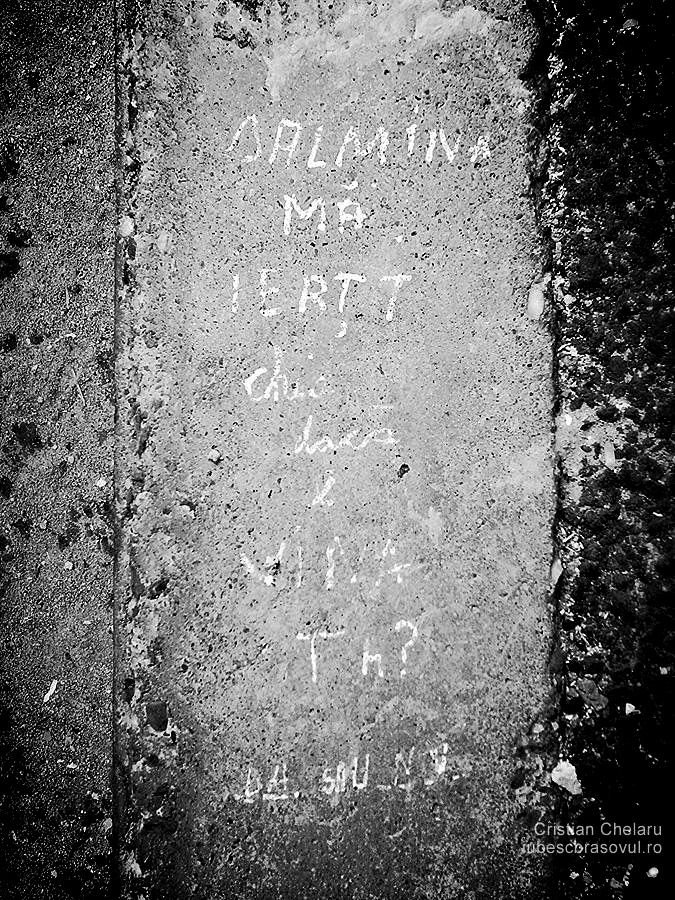 DALMINA
MĂ
IERȚI
chiar
dacă
e
VINA
TA?
DA SAU NU.
Cristian Chelaru
iubescbrasovul.ro